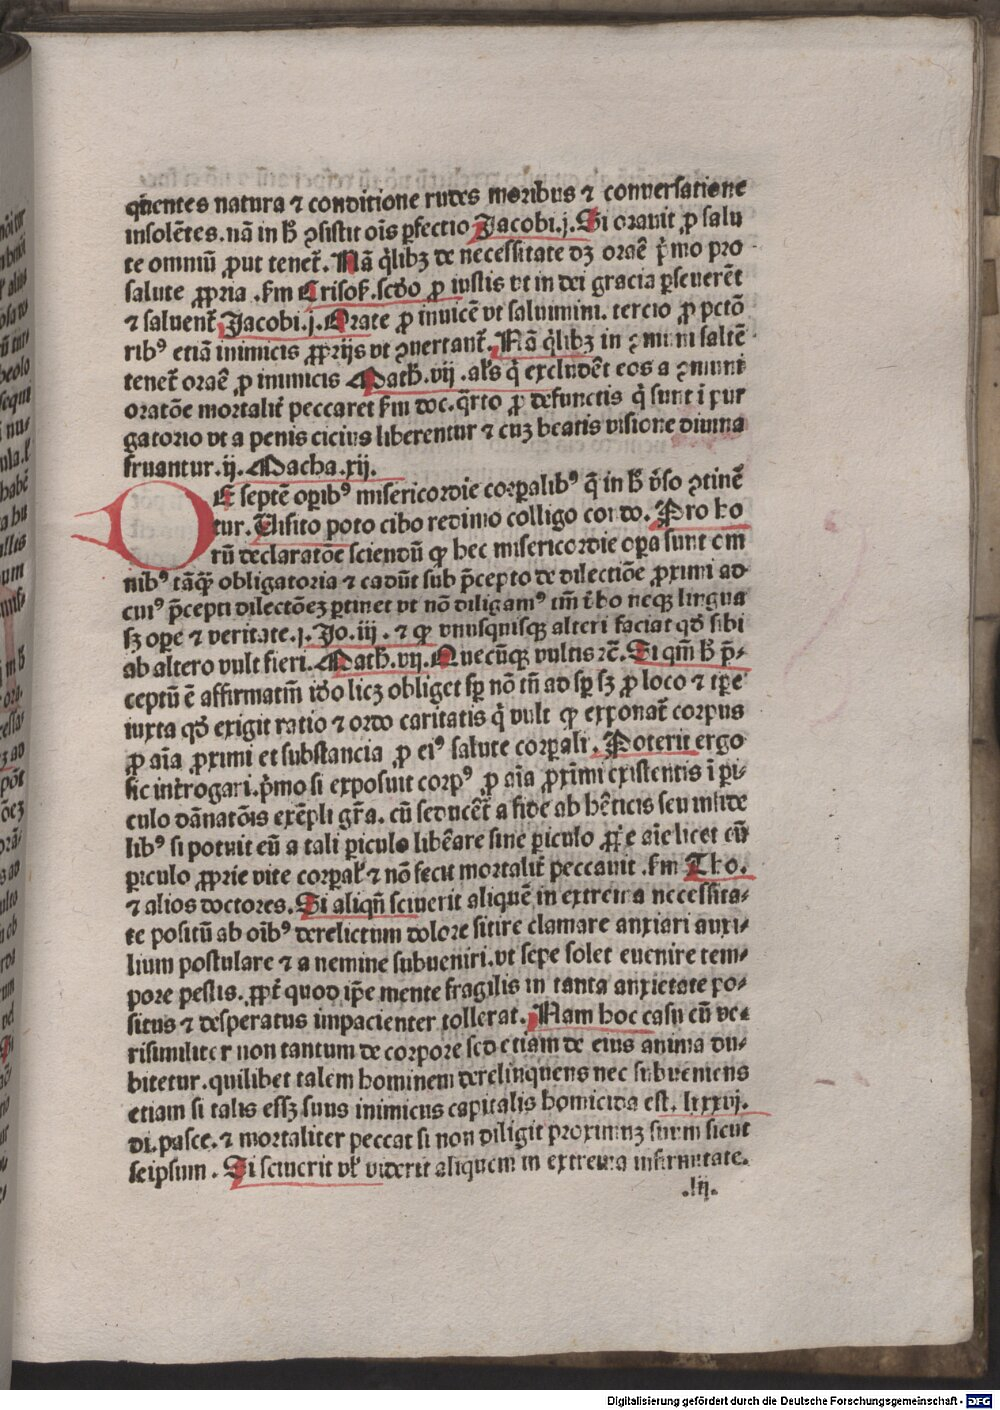 q̄uentes natura ⁊ conditione rudes moribus ⁊ conversatione
insolētes. nā in h̄ ꝯsistit oīs ꝑfectio Jacobi. j. Si oravit ꝓ salu
te omniū ꝓut tenet᷑. Nā q̇libꝫ de necessitate dꝫ oraē p̄mo pro
salute ꝓpria . ẜm Crisoẜ. scd̄o ꝓ iustis vt in dei gracia ꝑseuerēt
⁊ saluent᷑ Jacobi. j. Orate ꝓ inuicē vt saluimini. tercio ꝓ pctō
ribꝰ etiā inimicis ꝓprijs vt ꝯuertant᷑. Nā q̇libꝫ in ꝯmuni saltē
tenet᷑ oraē ꝓ inimicis Math̄. vij . al̄s q̇ excludēt eos a ꝯmuni
oratōe mortalit᷑ peccaret ẜm doc. q̄rto ꝓ defunctis q̇ sunt ī pur
gatorio vt a penis cicius liberentur ⁊ cuꝫ beatis visione diuina
fruantur. ij. Macha. xij.
DE septē oꝑibꝰ misericordie corꝑalibꝰ q̇ in h̄ v̄so ꝯtinē
tur. Uisito poto cibo redimo colligo condo. Pro ho
rū declaratōe sciendū ꝙ hec misericordie oꝑa sunt om
nibꝰ tāq̄ꝫ obligatoria ⁊ cadūt sub p̄cepto de dilectiōe ꝓximi ad
cuiꝰ p̄cepti dilectōeꝫ ꝑtinet vt nō diligamꝰ tm̄ v̄bo neqꝫ lingua
sꝫ oꝑe ⁊ veritate. j. Jo. iii. ⁊ ꝙ vnusquisqꝫ alteri faciat qd̄ sibi
ab altero vult fieri. Math̄. vij. Quecūqꝫ vultis ⁊c̄. Et qm̄ h̄ p̄⸗
ceptū ē affirmatiū iō licꝫ obliget sꝑ nō tn̄ ad sꝑ sꝫ ꝓ loco ⁊ tꝑe
iuxta qd̄ exigit ratio ⁊ ordo caritatis q̇ vult ꝙ exponat᷑ corpus
ꝓ aīa ꝓximi et substancia ꝓ eiꝰ salute corꝑali. Poterit ergo
sic introgari. p̄mo si exposuit corpꝰ ꝓ aīa ꝓximi existentis ī ꝑi
culo dānatōis exēpli gr̄a. cū seducēt᷑ a fide ab hēticis seu infide
libꝰ si potuit eū a tali ꝑiculo libēare sine ꝑiculo ꝓp̄e aīe licet cū
ꝑiculo ꝓprie vite corꝑal̄ ⁊ nō fecit mortalit᷑ peccauit . ẜm Tho.
⁊ alios doctores. Si aliqn̄ sciuerit aliquē in extrema necessita⸗
te positū ab oībꝰ derelictum dolore sitire clamare anxiari auxi⸗
lium postulare ⁊ a nemine subueniri. vt sepe solet euenire tem⸗
pore pestis. ꝓpt̄ quod ip̄e mente fragilis in tanta anxietate po⸗
situs ⁊ desperatus impacienter tollerat. Nam hoc casu cū ve⸗
risimiliter non tantum de corpore sed etiam de eius anima du⸗
bitetur. quilibet talem hominem derelinquens nec subueniens
etiam si talis essꝫ suus inimicus capitalis homicida est. lxxxvj.
di. pasce. ⁊ mortaliter peccat si non diligit proximuꝫ suum sicut
seipsum . Si sciuerit vl̄ viderit aliquem in extrema infirmitate.
.lij.
Digitalisierung gefördert durch die Deutsche Forschungsgemeinschaft - DFG